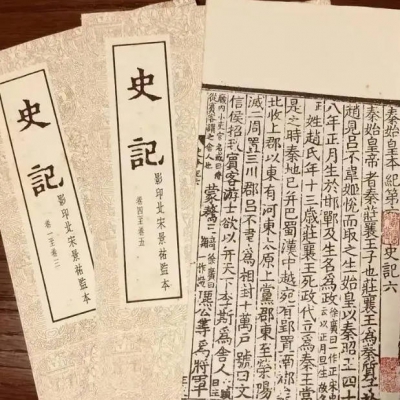 史記
影印北宋景祐監本
卷一至卷三
史記
影印北宋景祐監本
卷四至卷五
秦始皇本紀第
史記六
秦始皇帝者秦莊襄王子也莊襄王為秦質子
趙見呂不韋姬悅而取之生始皇以秦昭王四十
八年正月生於邯鄲及生名為政徐廣曰一作正宋忠云以正月旦生故名
姓趙氏年十三歲莊襄王死政代立為秦王當
是之時秦地已并巴蜀漢中越宛有郢置南郡
北收上郡以東有河東太原上黨郡東至滎陽
滅二周置三川郡呂不韋為相封十萬戶號曰文
信侯招致賓客游士欲以并天下李斯為舍人
蒙驁
麃公等為將軍